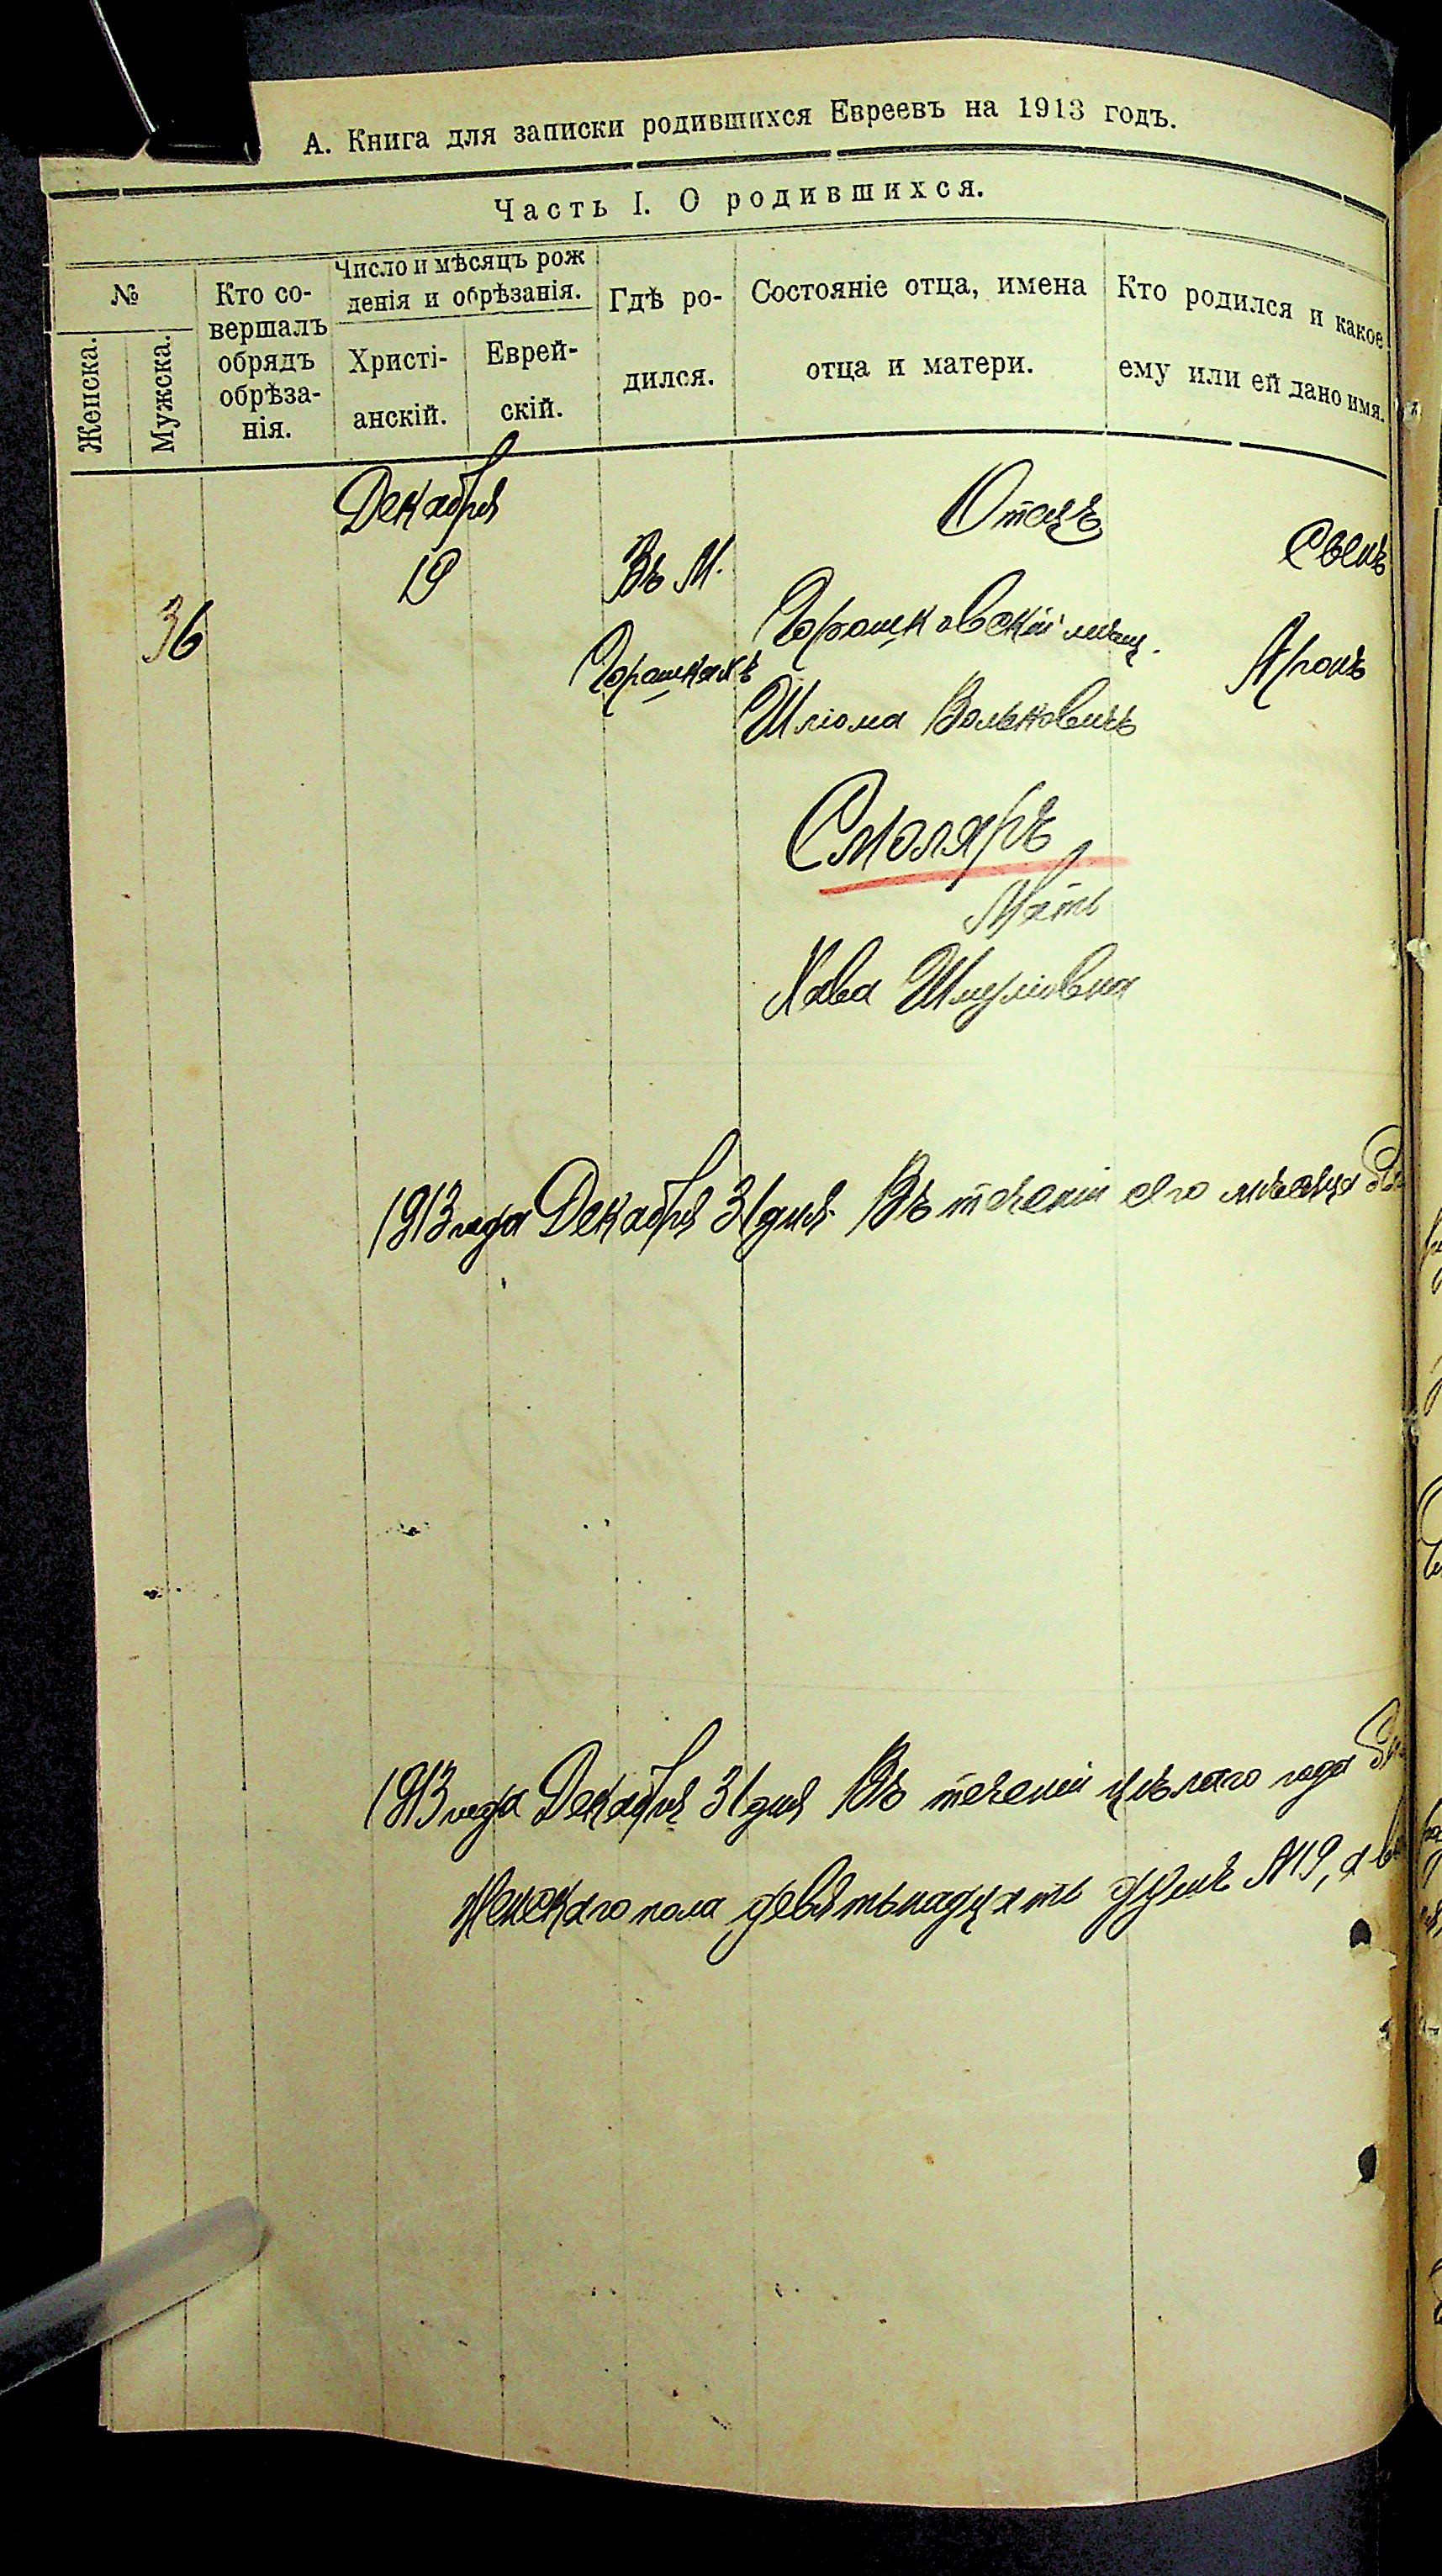 А. Книга для записки родившихся Евреевъ на 1913 годъ.
Часть I. О родившихся.
№
Женска.
Мужска.
Кто со-
вершалъ
обрядъ
обрѣза-
нія.
Число и мѣсяцъ рож
денія и обрѣзанія.
Христі-
анскій.
Еврей-
скій.
Гдѣ ро-
дился.
Состояніе отца, имена
отца и матери.
Кто родился и какое
ему или ей дано имя.
36
Декабря
19
Въ М.
Горошкахъ
Отецъ
Горошковскій мѣщ.
Шлiома Вольковичъ
Смоляръ
Мать
Хава Шмулiовна
Сынъ
Аронъ
1913 года Декабря 31 дня. Въ теченіи сего мѣсяца
1913 года Декабря 31 дня Въ теченіи цѣлаго года
Женскаго пола девятьнадцать душъ №19, а